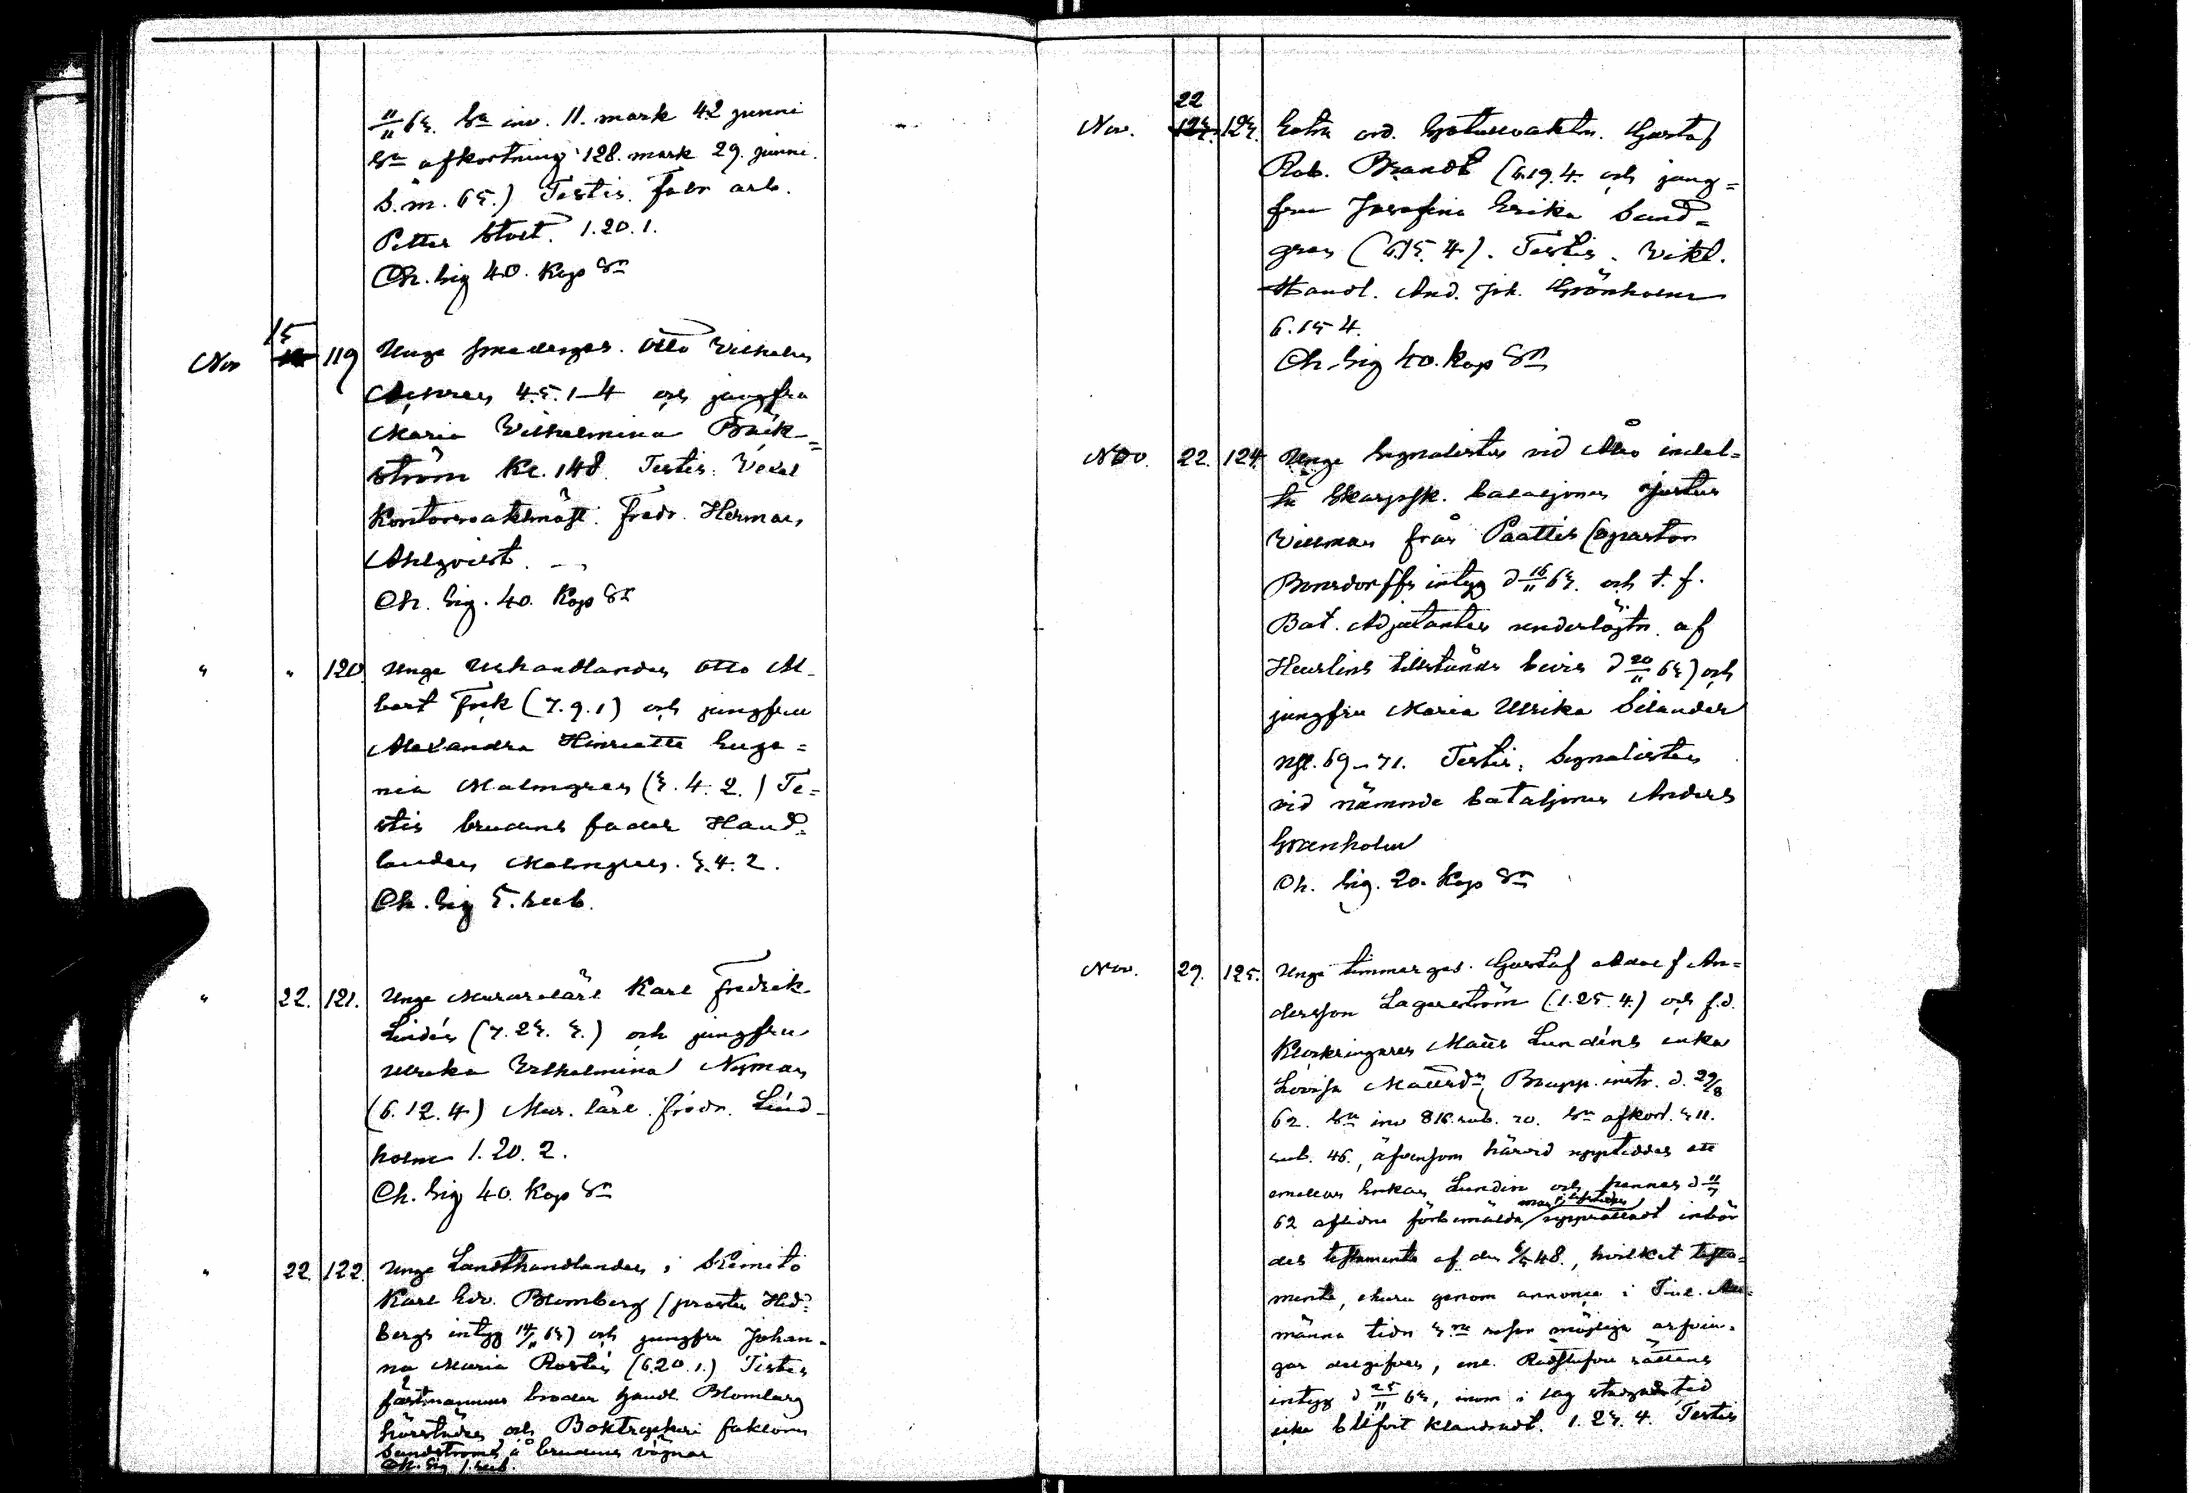 11/11 63. Sa inv. 11. mark 42 penni
Sa afkortning 128. mark 29. penni.
S. m. 65.) Testis. Fabr arb.
Petter 1.20.1.
Ch. Sig 40. Kop Sr
Nov 15 119 Unge smedsges. Otto Vilhelm
4.5.1-4 och jungfru
Maria Vilhelmina Bäck=
ström Kl. 148. Testis: Vexel
Kontorsvaktmäst. Fredr. Herman
Ahlqvist.
Ch. Sig. 40. Kop Sr
" " 120 Unge Urhandlanden Otto Al-
bert Fock (7.9.1) och jungfru
Alexandra Hinriette Euge=
nia Malmgren (3.4.2.) Te=
stis brudens fader Hand=
landen Malmgren. 3.4.2.
Ch. Sig 5. rub.
" 22. 121. Unge Murarelärl Karl Fredrik
Lindén (7.23.3.) och jungfru
Ulrika Vilhelmina Nyman
(6.12.4) Mur. lärl. Fredr. Lind-
holm 1.20.2.
Ch. Sig 40. Kop Sr
" 22. 122. Unge Landthandlanden i Kimito
Karl Edv. Blomberg (prosten Hed=
bergs intyg 14/11 63) och jungfru Johan-
na Maria Rostén (6.20.1.) Testes
fästmannens broder handl. Blomberg
härstädes och Boktryckeri faktorn
Sandström å brudens vägnar
Ch. Sig 1. rub.
Nov. 22 123. Extra ord. Gatuvaktn. Gustaf
Rob. Brandt (6.19.4. och jung=
fru Josefina Erika Sand=
gren (6.15.4). Testis. Vikt.
Handl. And. Joh. Grönholm
6.15 4.
Ch. Sig 40. Kop Sr
Nov. 22. 124. Unge Signalisten vid Åbo indel=
ta Skarpsk. bataljonen Justus
Willman från Paattis (pastor
Bonsdorffs intyg d 16/11 63. och t. f.
Bat. Adjutanten underlöjtn. af
Heurlins tillstånds bevis d 20/11 63) och
jungfru Maria Ulrika Silander
Ngt. 69-71. Testis: Signalisten
vid nämnde bataljonen Anders
Grenholm
Ch. Sig. 20. Kop Sr
Nov. 29. 125. Unge timmerges. Gustaf Adolf An=
dersson Lagerström (1.25.4.) och f.d.
Klockringaren Matts Lundéns enka
Lovisa Mattsdr. Boupp. instr. d. 29/8
62. Sa inv 816. rub. 20. Sa afkort. 311.
rub. 46., äfvensom härvid uppteddes ett
emellan Enkan Lundin och hennes d 11/7
62 aflidne förbemälda man i lifstiden upprättadt inbör
des testamente af den 6/5 48., hvilket testa=
mente, ehuru genom annonce i Finl. All=
männa tidn 3ne resor möjliga arfvin=
gar delgifven, enl. Rådstufvu rättens
intyg d 25/11 63, inom i lag stadgad tid
icke blifvit klandradt. 1.23.4. Testis